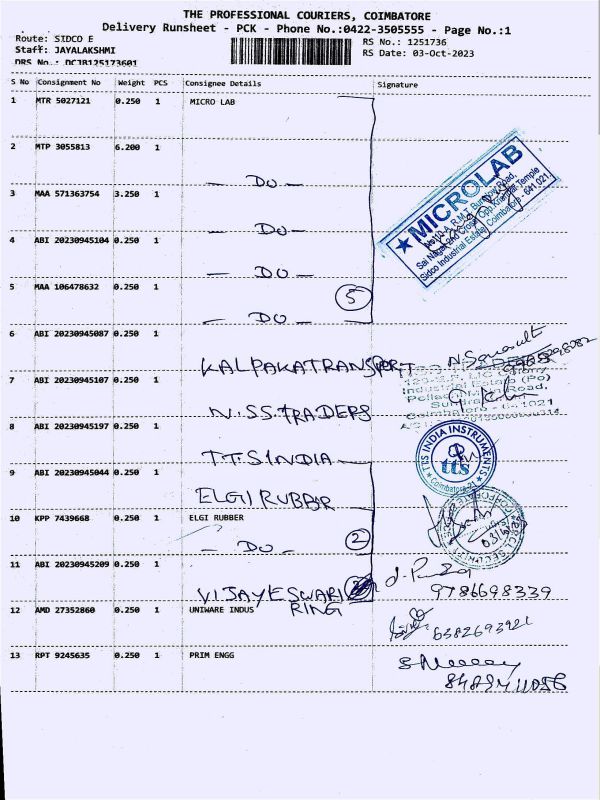 THE PROFESSIONAL COURIERS, COIMBATORE
Delivery Runsheet - PCK - Phone No.:0422-3505555 - Page No.:1
Route: SIDCO E
RS No.: 1251736
Staff: JAYALAKSHMI
RS Date: 03-Oct-2023
DRS No.: DCJB125173601
S No Consignment No Weight PCS Consignee Details Signature
1 MTR 5027121 0.250 1 MICRO LAB
2 MTP 3055813 6.200 1
— DO —
3 MAA 571363754 3.250 1
— DO —
4 ABI 20230945104 0.250 1
— DO —
5 MAA 106478632 0.250 1
5
— DO —
★ MICROLAB
Sidco Industrial Estate, Coimbatore - 641 021
6 ABI 20230945087 0.250 1
KALPAKATRANSPORT
7 ABI 20230945107 0.250 1
N.SS.TRADERS
Industrial Estate (Po)
8 ABI 20230945197 0.250 1
T.T.S INDIA
TTS INDIA INSTRUMENTS
tts
Coimbatore-21
9 ABI 20230945044 0.250 1
ELGI RUBBER
10 KPP 7439668 0.250 1 ELGI RUBBER
— DO —
2
11 ABI 20230945209 0.250 1
VIJAYESWARI
RING
9786698339
12 AMD 27352860 0.250 1 UNIWARE INDUS
6382693921
13 RPT 9245635 0.250 1 PRIM ENGG